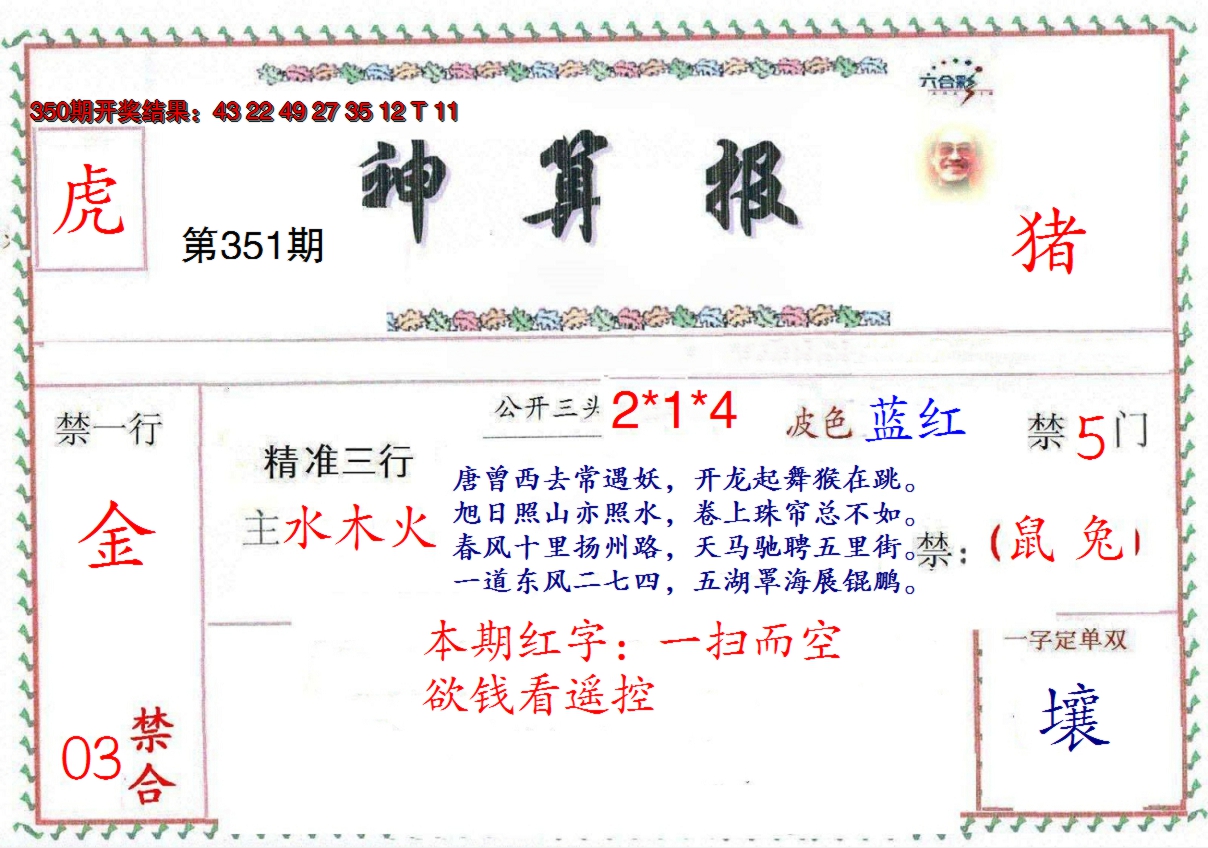 六合彩
350期开奖结果：43 22 49 27 35 12 T 11
神算报
虎
第351期
猪
禁一行
金
03禁合
精准三行
主水木火
公开三头 2*1*4
波色 蓝红
禁5门
唐曾西去常遇妖，开龙起舞猴在跳。
旭日照山亦照水，卷上珠帘总不如。
春风十里扬州路，天马驰聘五里街。
一道东风二七四，五湖罩海展锟鹏。
禁：（鼠 兔）
本期红字：一扫而空
欲钱看遥控
一字定单双
壤